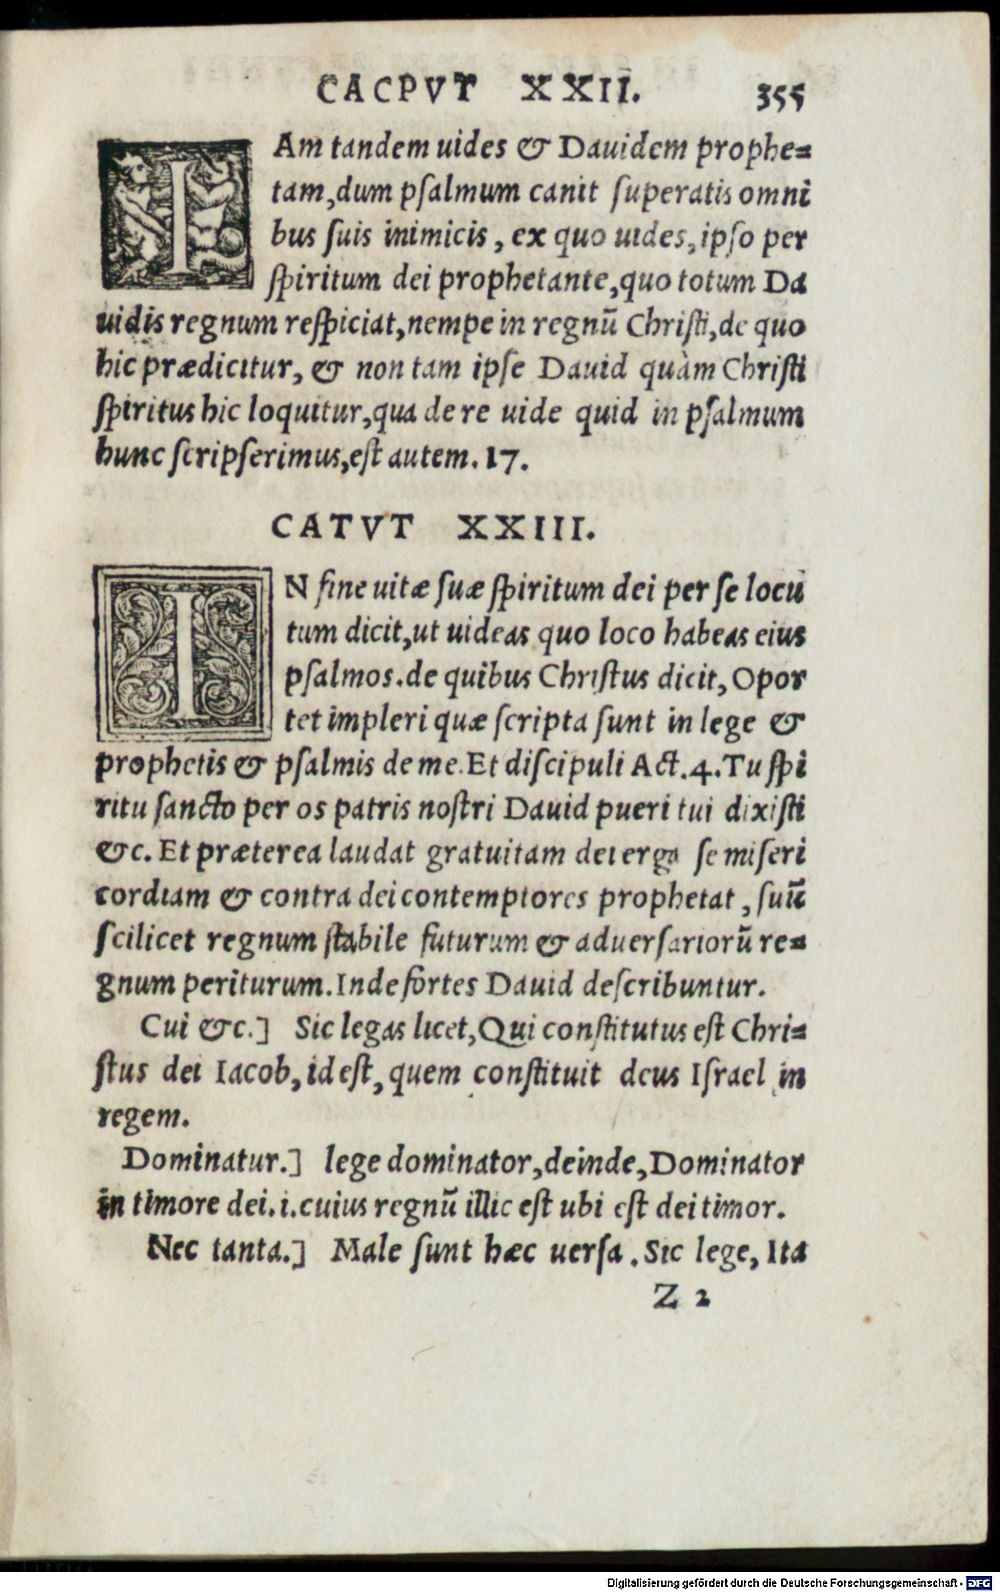 CACPVT XXII. 355
IAm tandem uides & Dauidem prophe=
tam, dum pſalmum canit ſuperatis omni
bus ſuis inimicis, ex quo uides, ipſo per
ſpiritum dei prophetante, quo totum Da
uidis regnum reſpiciat, nempe in regnũ Chriſti, de quo
hic prædicitur, & non tam ipſe Dauid quàm Chriſti
ſpiritus hic loquitur, qua de re uide quid in pſalmum
hunc ſcripſerimus, eſt autem. 17.
CATVT XXIII.
IN fine uitæ ſuæ ſpiritum dei per ſe locu
tum dicit, ut uideas quo loco habeas eius
pſalmos. de quibus Chriſtus dicit, Opor
tet impleri quæ ſcripta ſunt in lege &
prophetis & pſalmis de me. Et diſcipuli Act. 4. Tu ſpi
ritu ſancto per os patris noſtri Dauid pueri tui dixiſti
&c. Et præterea laudat gratuitam dei erga ſe miſeri
cordiam & contra dei contemptores prophetat, ſuũ
ſcilicet regnum ſtabile futurum & aduerſariorũ re=
gnum periturum. Inde fortes Dauid deſcribuntur.
Cui &c.] Sic legas licet, Qui conſtitutus eſt Chri=
ſtus dei Iacob, id eſt, quem conſtituit deus Iſrael in
regem.
Dominatur.] lege dominator, deinde, Dominator
in timore dei. i. cuius regnũ illic eſt ubi eſt dei timor.
Nec tanta.] Male ſunt hæc uerſa. Sic lege, Ita
Z 2
Digitalisierung gefördert durch die Deutsche Forschungsgemeinschaft - DFG